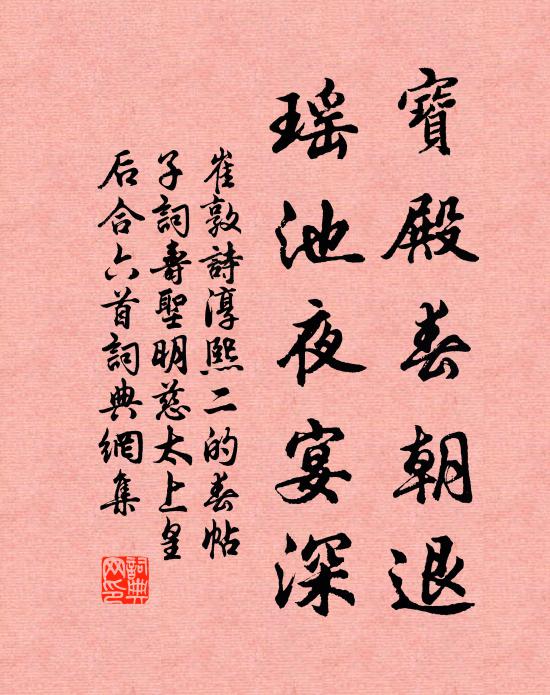 寶殿春朝退
瑶池夜宴深
崔敦詩淳熙二的春帖
子詞壽聖明慈太上皇
后合六首詞典網集
詞典网印